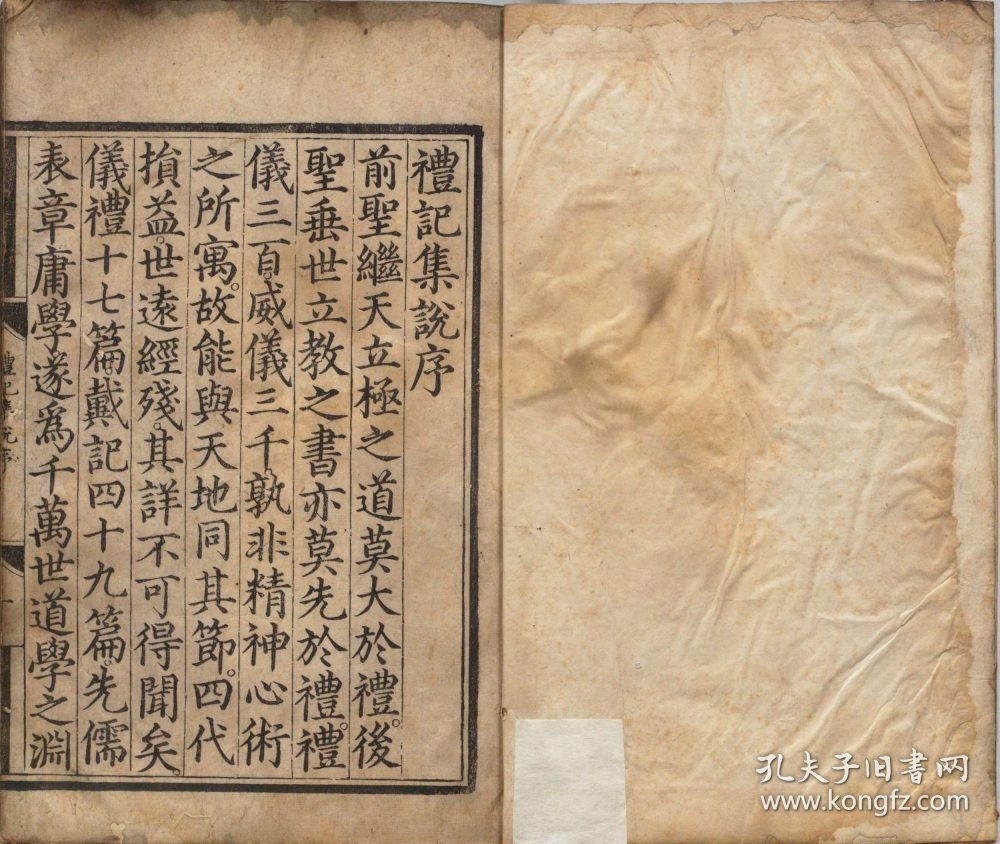 禮記集說序
前聖繼天立極之道莫大於禮。後
聖垂世立教之書亦莫先於禮。禮
儀三百。威儀三千。孰非精神心術
之所寓。故能與天地同其節。四代
損益。世遠經殘。其詳不可得聞矣。
儀禮十七篇。戴記四十九篇。先儒
表章庸學遂爲千萬世道學之淵
禮記集說序
一
孔夫子旧书网
www.kongfz.com